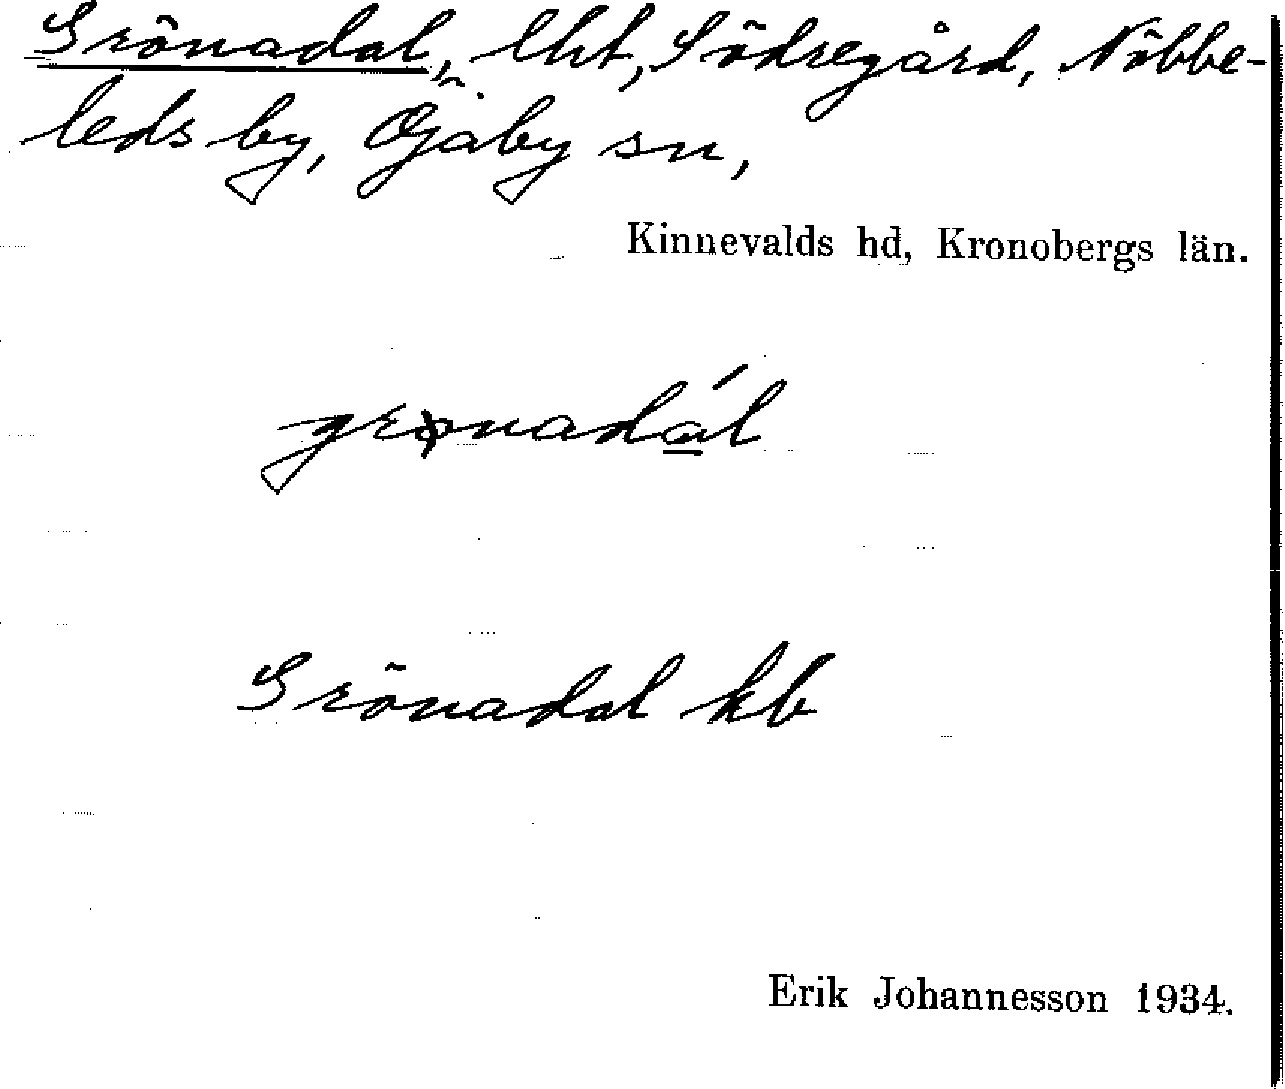 Grönadal, lht, Södregård, Nöbbe-
leds by, Öjaby sn,
Kinnevalds hd, Kronobergs län.
grønadál
Grönadal kb
Erik Johannesson 1934.